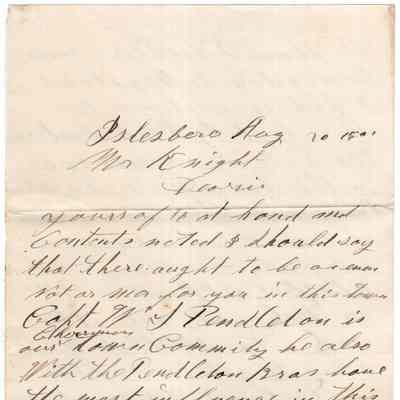 Islesboro Aug 20
Mr Knight
Dear sir
yours of 16 at hand and
Contents noted I should say
that there aught to be
for you in this town
Capt W. S Pendleton is
Chairman
our town Commity he also
With the Pendleton Bros have
the most influence in this